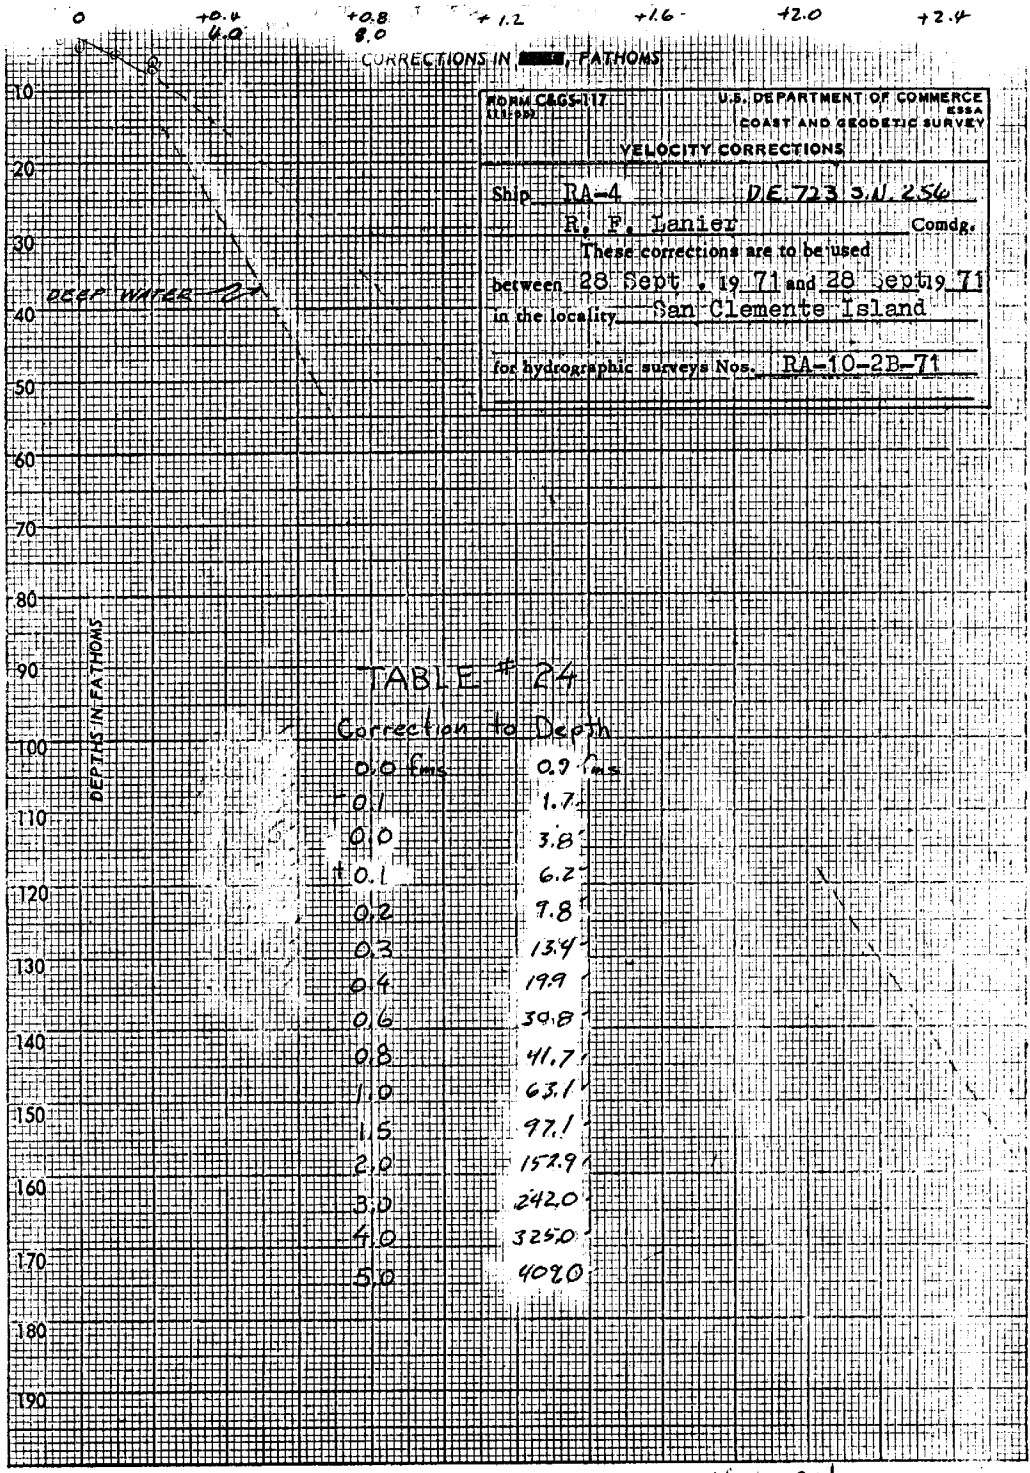 0 +0.4 +0.8 +1.2 +1.6 +2.0 +2.4
4.0 8.0
CORRECTIONS IN FATHOMS
FORM C&GS-117
U.S. DEPARTMENT OF COMMERCE
ESSA
COAST AND GEODETIC SURVEY
VELOCITY CORRECTIONS
Ship RA-4 D.E. 723 S.N. 256
R. F. Lanier Comdg.
These corrections are to be used
between 28 Sept . 19 71 and 28 Sept 19 71
in the locality San Clemente Island
for hydrographic surveys Nos. RA-10-2B-71
10
20
30
DEEP WATER
40
50
60
70
80
90
100
110
120
130
140
150
160
170
180
190
DEPTHS IN FATHOMS
TABLE # 24
Correction to Depth
0.0 fms 0.9 fms
- 0.1 1.7
0.0 3.8
+ 0.1 6.2
0.2 9.8
0.3 13.4
0.4 19.9
0.6 30.8
0.8 41.7
1.0 63.1
1.5 97.1
2.0 152.9
3.0 242.0
4.0 325.0
5.0 409.0